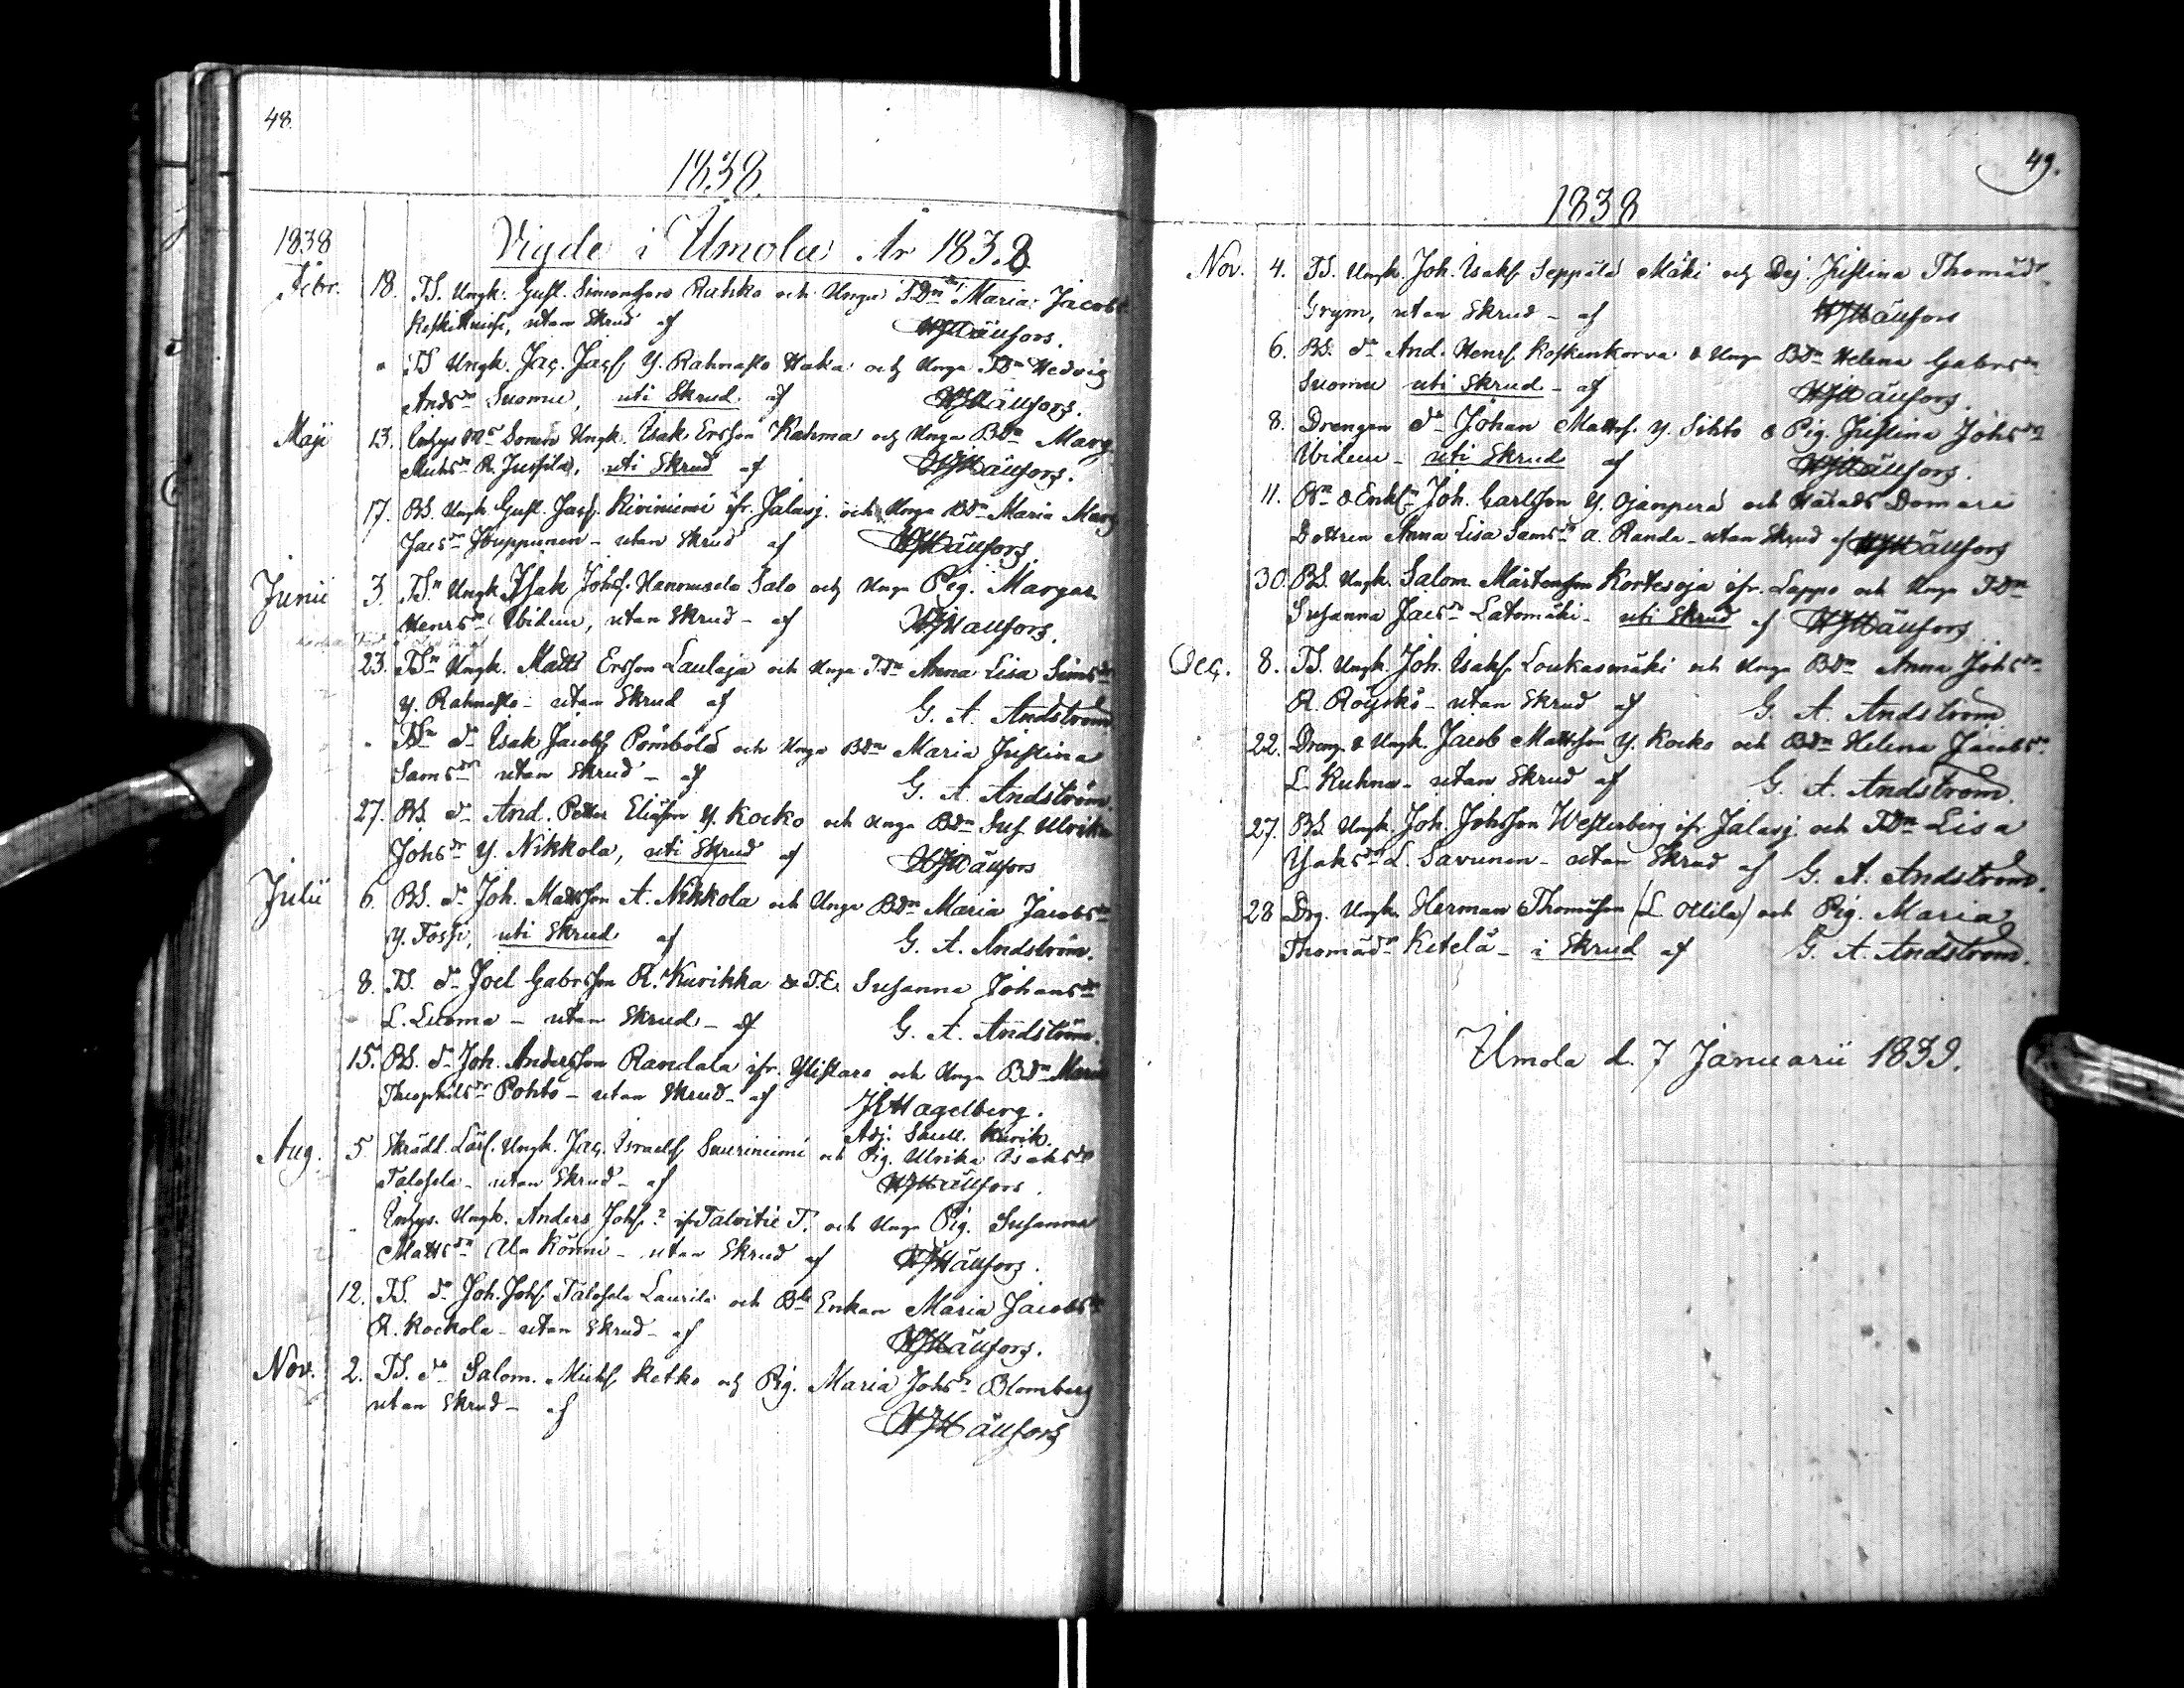 48.
1838.
1838 Vigde i Ilmola År 1838
Febr. 18. TS. Ungk. Gust. Simonsson Rahko och Unga TDn Maria Jacobs
utan Skrud af WJHällfors.
" TS Ungk. Jac. Jacs. Y. Rahnasto Haka och Unga TDn Hedvig
Andsdr Suomu, uti Skrud af WJHällfors.
Maji 13. Inhys Sonen Ungk. Isak Ersson Rahma och Unga BDn Marg
Michsdr R. Jussila, uti Skrud af WJHällfors.
17. BS. Ungk. Gust. Jacs. Kiviniemi ifr. Jalasj. och Unga BDn Maria Marg
Jacsdr Jouppinen - utan Skrud af WJHällfors.
Junii 3. TSn Ungk. Isak Johs. Hannuksela Salo och Unga Pig. Margar
Henrsdr Widin, utan Skrud - af WJHällfors.
23. TSn Ungk. Matts Ersson Laulaja och Unga TDn Anna Lisa Simsdr
Y. Rahnasto - utan Skrud af G. A. Andström
" TSn do Isak Jacobs. Pömbölä och Unga BDn Maria Justina
Samsdr utan Skrud - af G. A. Andström.
27. BS. do And. Petter Eliasson Y. Kocko och Unga BDn Sus. Ulrika
Johsdr Y. Nikkola, uti Skrud af WJHällfors
Julii 6. BS. do Joh. Mattsson A. Nikkola och Unga BDn Maria Jacobsdr
Y. Fossi, uti Skrud af G. A. Andström.
8. TS. do Joel Gabrsson R. Kurikka & T.E. Susanna Johansdr
L. Luoma - utan Skrud - af G. A. Andström.
15. BS. do Joh. Andersson Randala ifr. Ylistaro och Unga BDn Maria
Theophilsdr Pohto - utan Skrud - af JEHagelberg.
Adj. Sacell. Kurik.
Aug. 5. Skrädd. Lärl. Ungk. Jac. Israels. Sauriniemi och Pig. Ulrika Isaksdr
Talosela - utan Skrud - af WJHällfors.
" Inhys. Ungk. Anders Johs. ifr Talvitie T. och Unga Pig. Susanna
Mattsdr Ala Könni - utan Skrud af WJHällfors.
12. TS. do Joh. Johs. Talosela Laurila och Bde Enkan Maria Jacobsdr
R. Kockola - utan Skrud - af WJHällfors.
Nov. 2. TS. do Salom. Michs. Retko och Pig. Maria Johsdr Blomberg
utan Skrud - af WJHällfors
49.
1838
Nov. 4. TS. Ungk. Joh. Isaks. Seppälä Mäki och Dej. Justina Thomädr
Grym, utan Skrud - af WJHällfors
6. BS. do And. Henrs. Koskenkorva & Unga BDn Helena Gabrsdr
Suomu uti Skrud - af WJHällfors.
8. Drengen do Johan Matts. Y. Sihto & Pig. Justina Johsdr
Widin - uti Skrud af WJHällfors.
11. & Enkl. Joh. Carlsson Y. Ojanperä och Härads Domare
Dottren Anna Lisa Samsdr A. Randa - utan Skrud af WJHällfors
30. BS. Ungk. Salom. Mårtensson Kortesoja ifr. Lappo och Unga TDn
Susanna Jacsdr Latomäki - uti Skrud af WJHällfors
Dec. 8. TS. Ungk. Joh. Isaks. Loukasmäki och Unga BDn Anna Johsdr
R. Röyskö - utan Skrud af G. A. Andström
22. Dreng. & Ungk. Jacob Mattsson Y. Kocko och BDn Helena Jacobsdr
L. Ruhna - utan Skrud af G. A. Andström.
27. BS. Ungk. Joh. Johsson Westerberg ifr Jalasj. och TDn Lisa
Isaksdr L. Savunen - utan Skrud af G. A. Andström.
28 Drg. Ungk. Herman Thomäson (L. Ollila) och Pig. Maria
Thomädr Ketelä - i Skrud af G. A. Andström.
Ilmola d. 7 Januarii 1839.